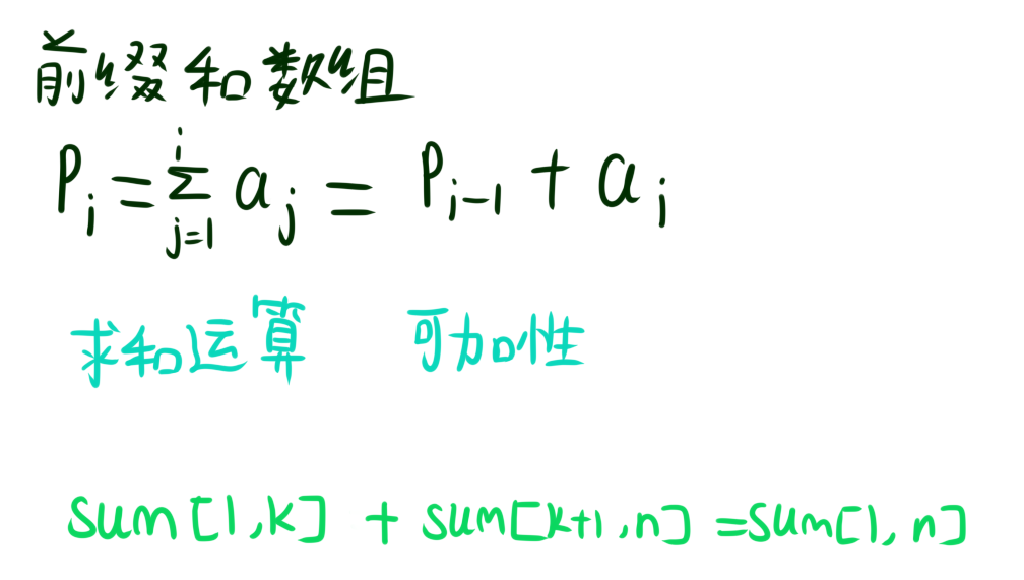 前缀和数组
P_i = \sum_{j=1}^{i} a_j = P_{i-1} + a_i
求和运算 可加性
sum[1,k] + sum[k+1,n] = sum[1,n]